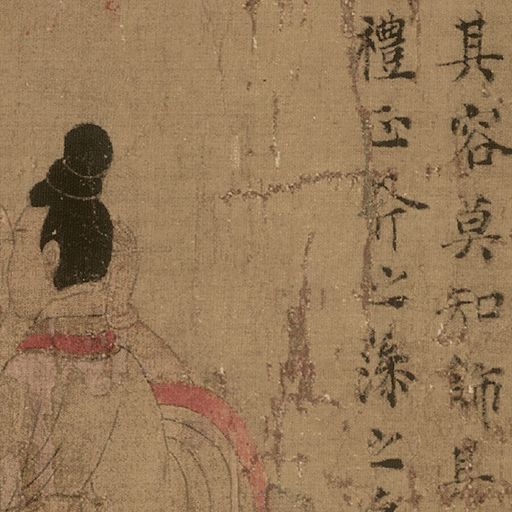 其容莫知飾其
禮正斧之藻之